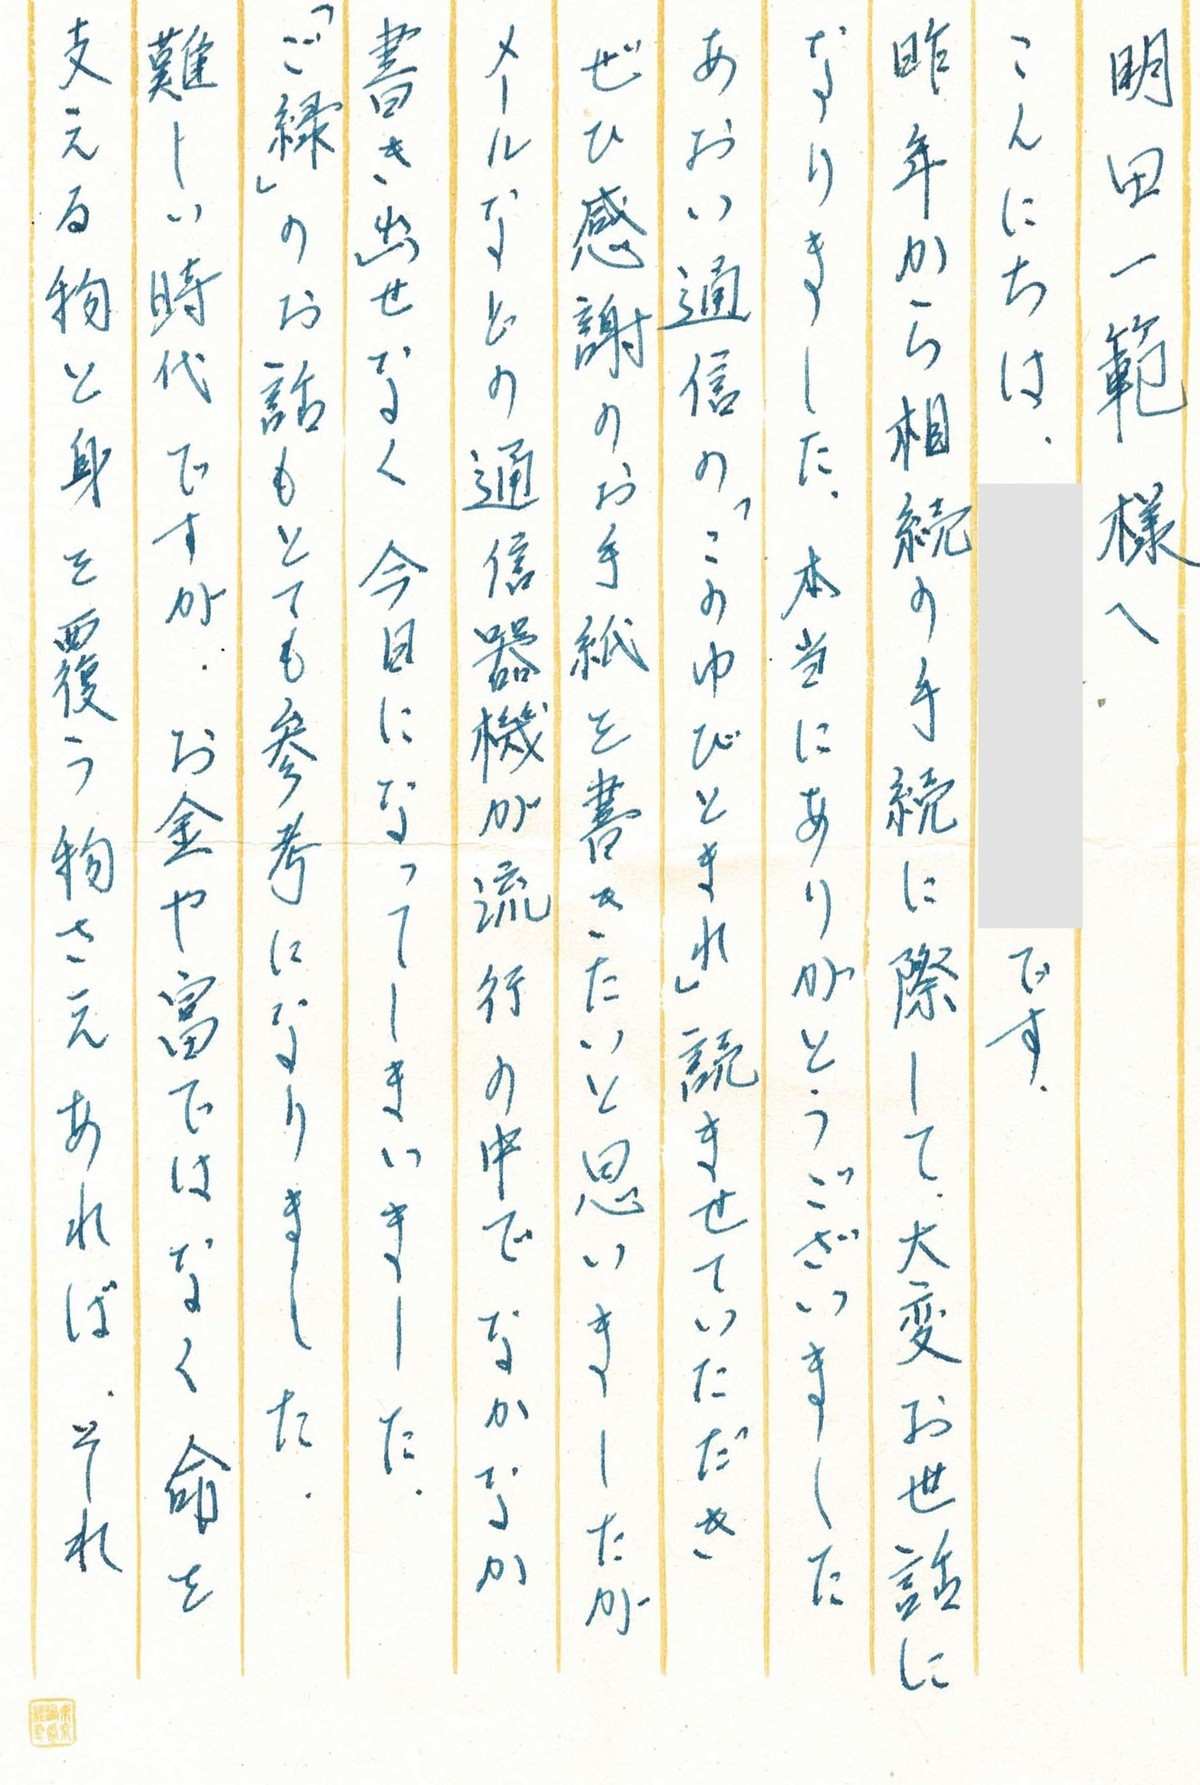 明田一範様へ
こんにちは、
です。
昨年から相続の手続に際して、大変お世話に
なりました。本当にありがとうございました
あおい通信の「この中びとまれ」読ませていただき
ぜひ感謝のお手紙を書きたいと思いましたが
メールなどの通信器機が流行の中でなかなか
書き出せなく今日になってしまいました。
「ご縁」のお話もとても参考になりました。
難しい時代ですが、お金や富ではなく命を
支える物と身を覆う物さえあれば、それ